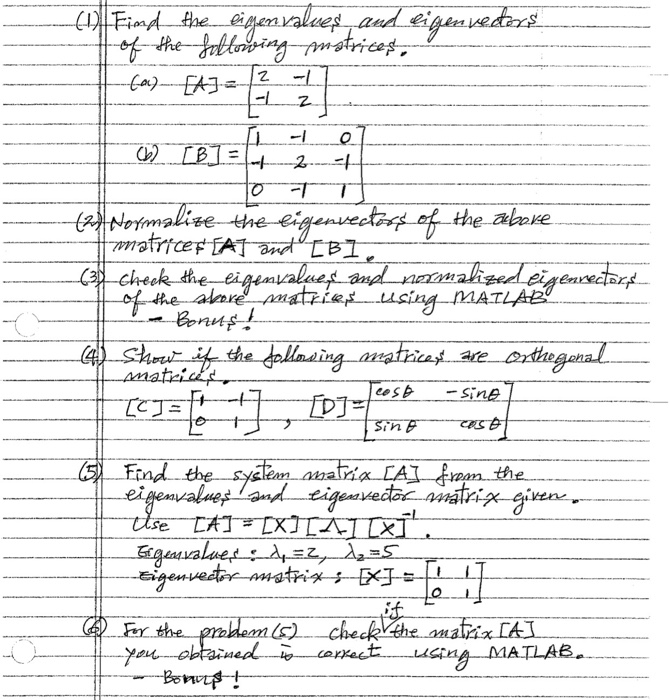 (1) Find the eigenvalues and eigenvectors
of the following matrices.
(a) [A] = [2 -1
-1 2]
(b) [B] = [1 -1 0
-1 2 -1
0 -1 1]
(2) Normalize the eigenvectors of the above
matrices [A] and [B].
(3) check the eigenvalues and normalized eigenvectors
of the above matrices using MATLAB
- Bonus!
(4) Show if the following matrices are orthogonal
matrices.
[C] = [1 -1
0 1] , [D] = [cosθ -sinθ
sinθ cosθ]
(5) Find the system matrix [A] from the
eigenvalues and eigenvector matrix given.
Use [A] = [X][Λ][X]⁻¹.
Eigenvalues : λ₁=2, λ₂=5
Eigenvector matrix : [X] = [1 1
0 1]
(6) For the problem (5) check if the matrix [A]
you obtained is correct using MATLAB.
- Bonus!